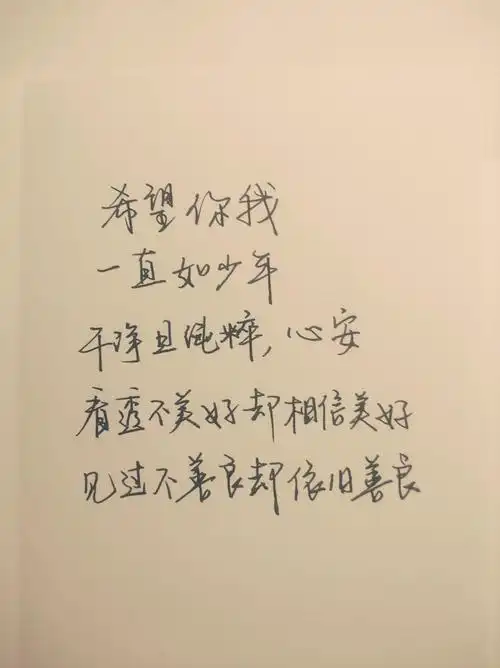 希望你我
一直如少年
干净且纯粹,心安
看透不美好却相信美好
见过不善良却依旧善良